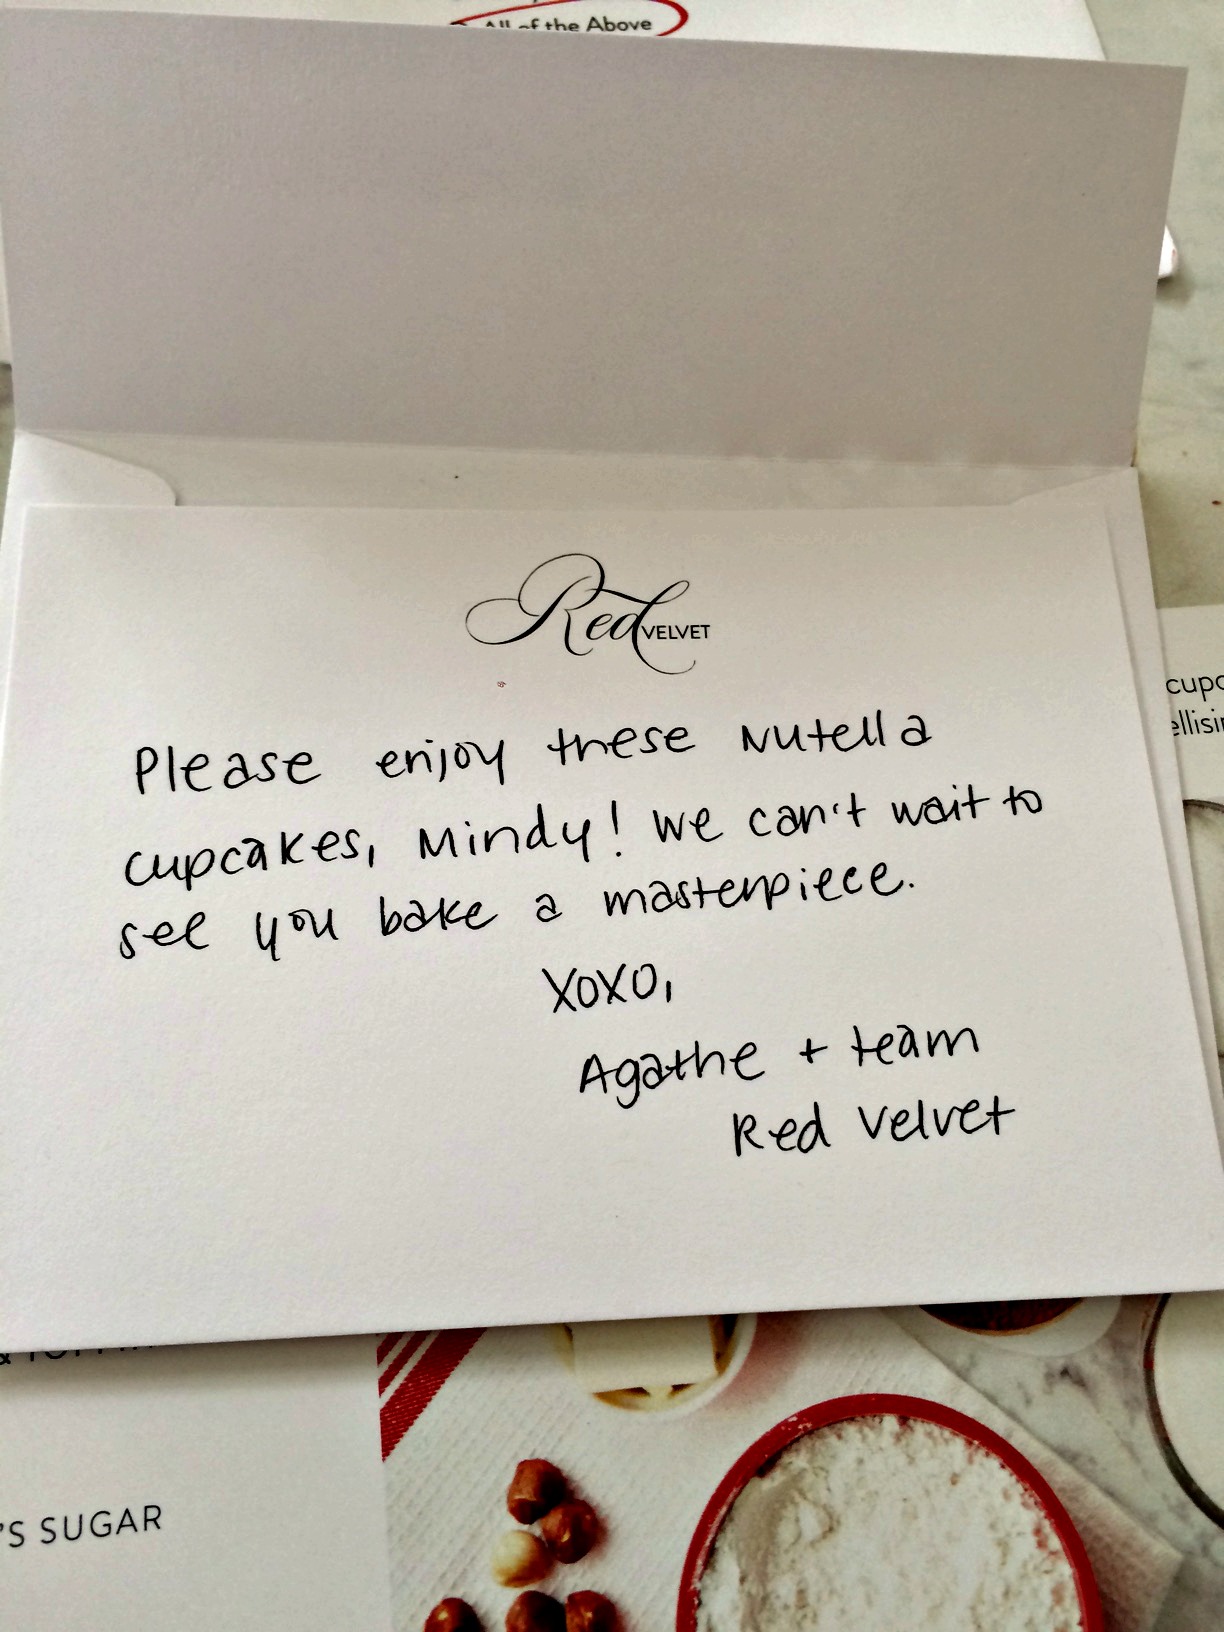 All of the Above
Red VELVET
Please enjoy these Nutella
cupcakes, Mindy! We can't wait to
see you bake a masterpiece.
XOXO,
Agathe + team
Red Velvet
'S SUGAR